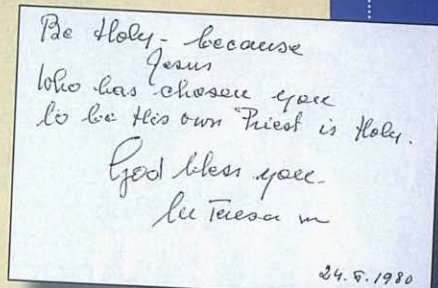 Be Holy - because
Jesus
Who has chosen you
to be His own Priest is Holy.
God bless you
Teresa